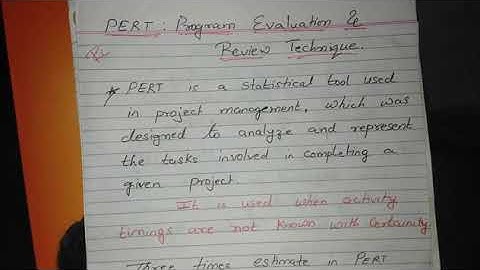 PERT : Program Evaluation &
Review Technique.
* PERT is a statistical tool used
in project management, which was
designed to analyze and represent
the tasks involved in completing a
given project.
It is used when activity
timings are not known with certainity.
Three times estimate in PERT